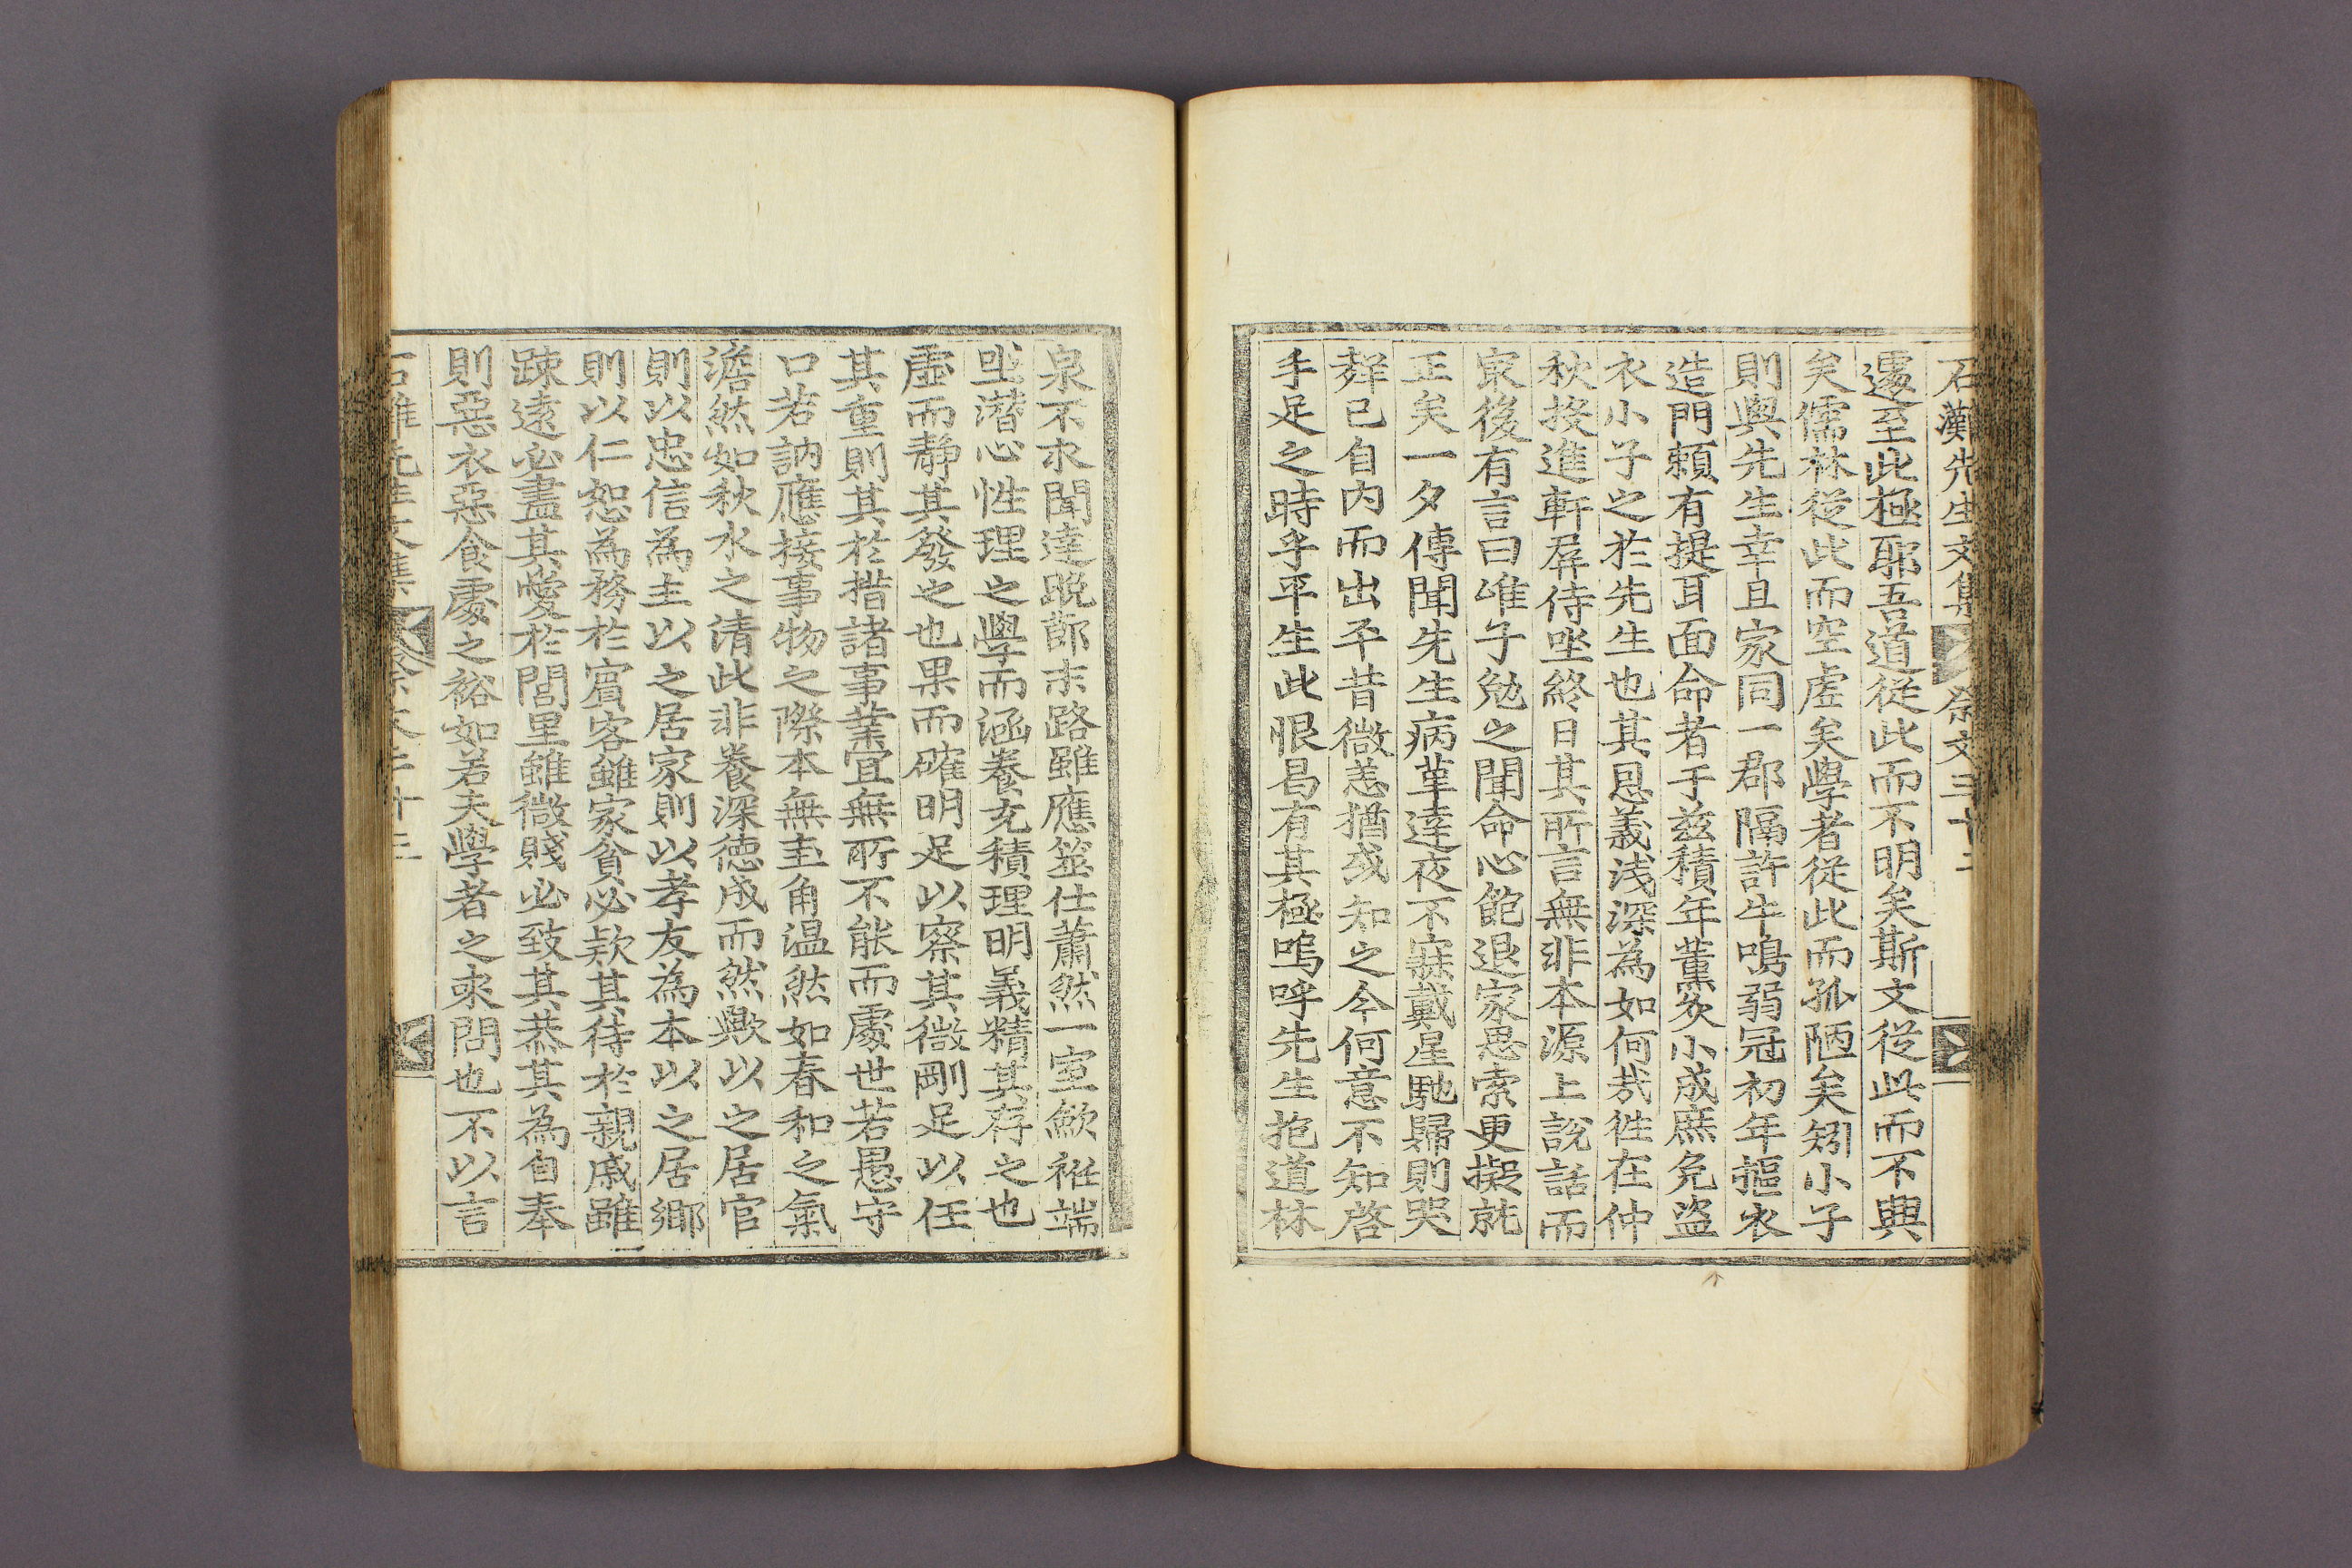 石灘先生文集 祭文 三十二
遽至此極耶吾道從此而不明矣斯文從此而不興
矣儒林從此而空虛矣學者從此而孤陋矣矧小子
則與先生幸且家同一郡隔許牛鳴弱冠初年摳衣
造門賴有提耳面命者于玆積年薰炙小成庶免盜
衣小子之於先生也其恩義浅深為如何㢤徃在仲
秋投進軒屛侍坐終日其所言無非本源上說話而
㝡後有言曰唯子勉之聞命心飽退家思索更擬就
正矣一夕傳聞先生病革達夜不寐戴星馳歸則哭
聲已自內而出平昔微恙猶或知之今何意不知啓
手足之時乎平生此恨曷有其極嗚呼先生抱道林
泉不求聞達晩莭末路雖應筮仕蕭然一室歛袵端
坐潜心性理之學而涵養充積理明義精其存之也
虛而靜其發之也果而確明足以察其微剛足以任
其重則其於措諸事業宜無所不能而處世若愚守
口若訥應接事物之際本無圭角温然如春和之氣
澹然如秋水之清此非養深德成而然歟以之居官
則以忠信為主以之居家則以孝友為本以之居鄕
則以仁恕為務於賓客雖家貧必欵其待於親戚雖
踈遠必盡其愛於閭里雖微賤必致其恭其為自奉
則惡衣惡食處之裕如若夫學者之來問也不以言
石灘先生文集 祭文 三十三